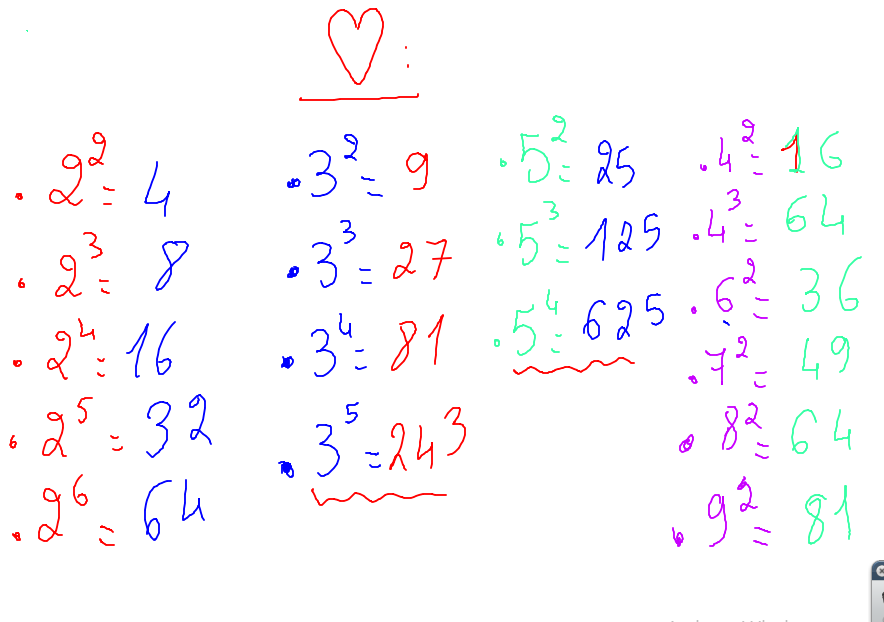 ♡:
• 2² = 4
• 2³ = 8
• 2⁴ = 16
• 2⁵ = 32
• 2⁶ = 64
• 3² = 9
• 3³ = 27
• 3⁴ = 81
• 3⁵ = 243
• 5² = 25
• 5³ = 125
• 5⁴ = 625
• 4² = 16
• 4³ = 64
• 6² = 36
• 7² = 49
• 8² = 64
• 9² = 81